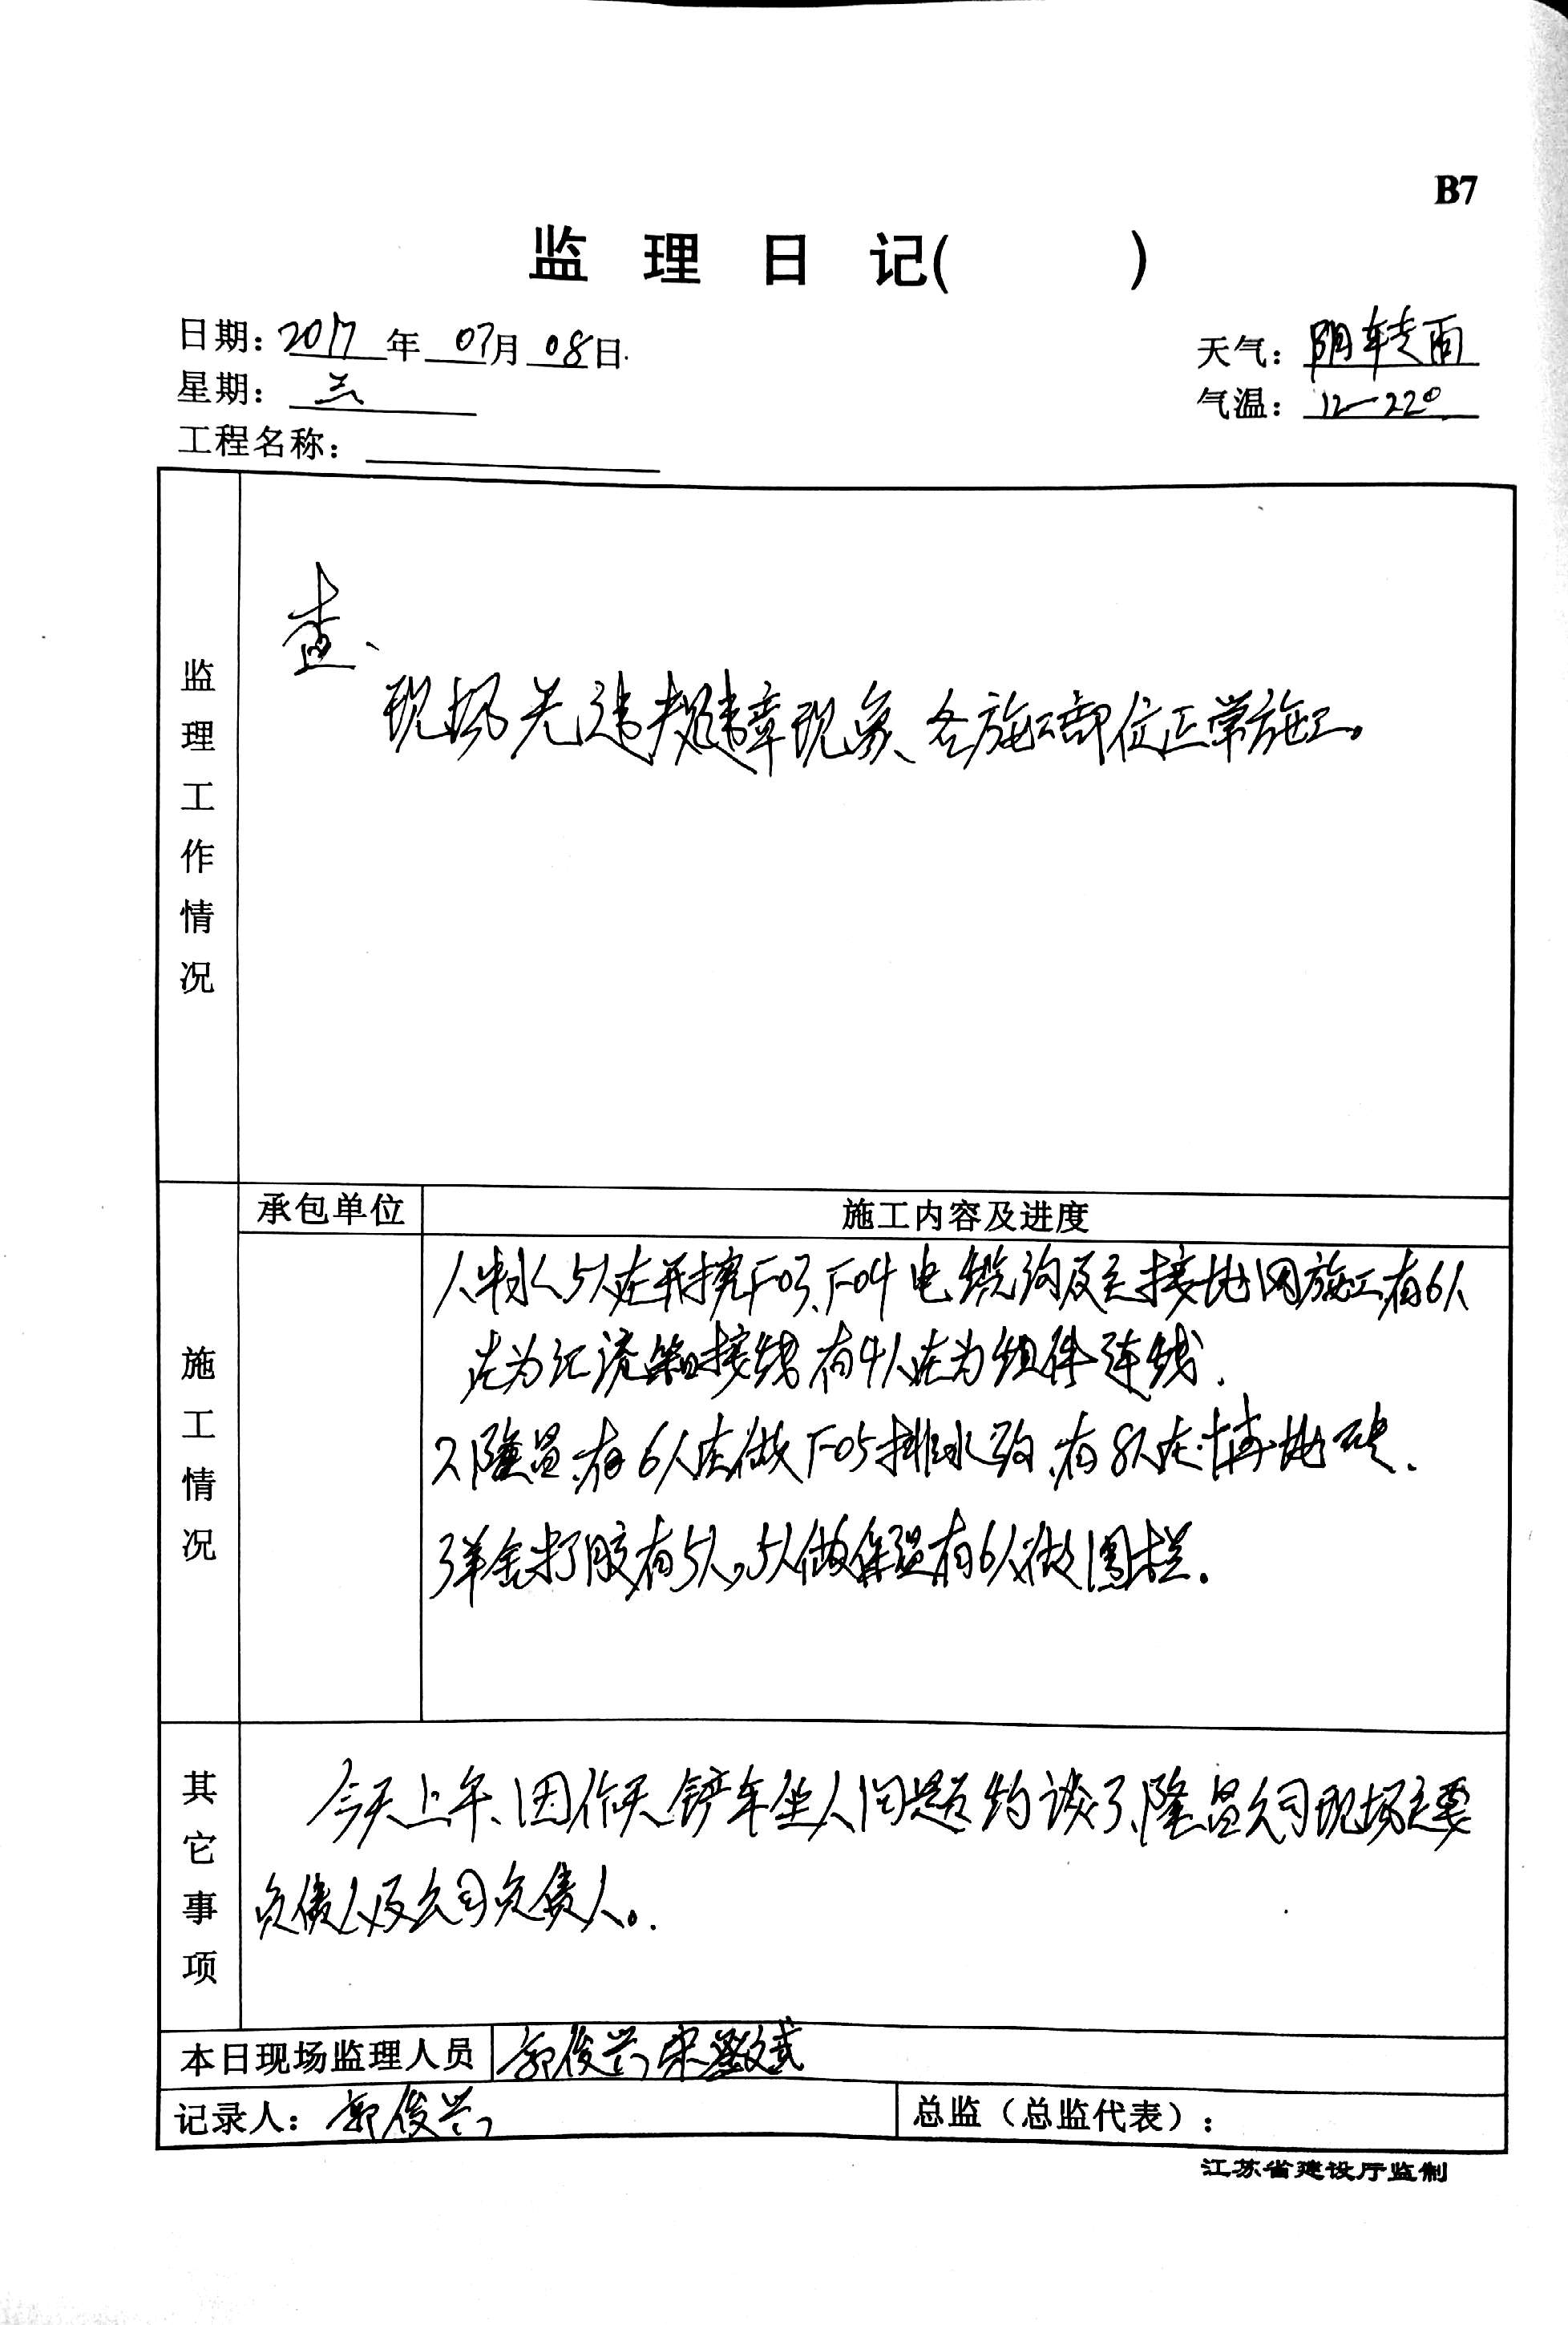 B7
监 理 日 记( )
日期: 2017 年 07月 08日
天气: 阴转雨
星期: 六
气温: 12-22°
工程名称:
监理工作情况
查、
现场无违规违章现象、各施工部位正常施工。
承包单位
施工内容及进度
施工情况
5人在开挖F03、F04电缆沟及主接地网施工,有6人
在为汇流箱接线 有4人在为组件连线.
2、隆昌、有6人在做F05排水沟、有8人在铺地砖.
3、洋金打胶有5人,5人做保温有6人做围栏.
其它事项
今天上午、因昨天铲车坐人问题约谈了隆昌公司现场主要
负责人及公司负责人。
本日现场监理人员
郭俊兴 宋
记录人: 郭俊兴
总监(总监代表):
江苏省建设厅监制